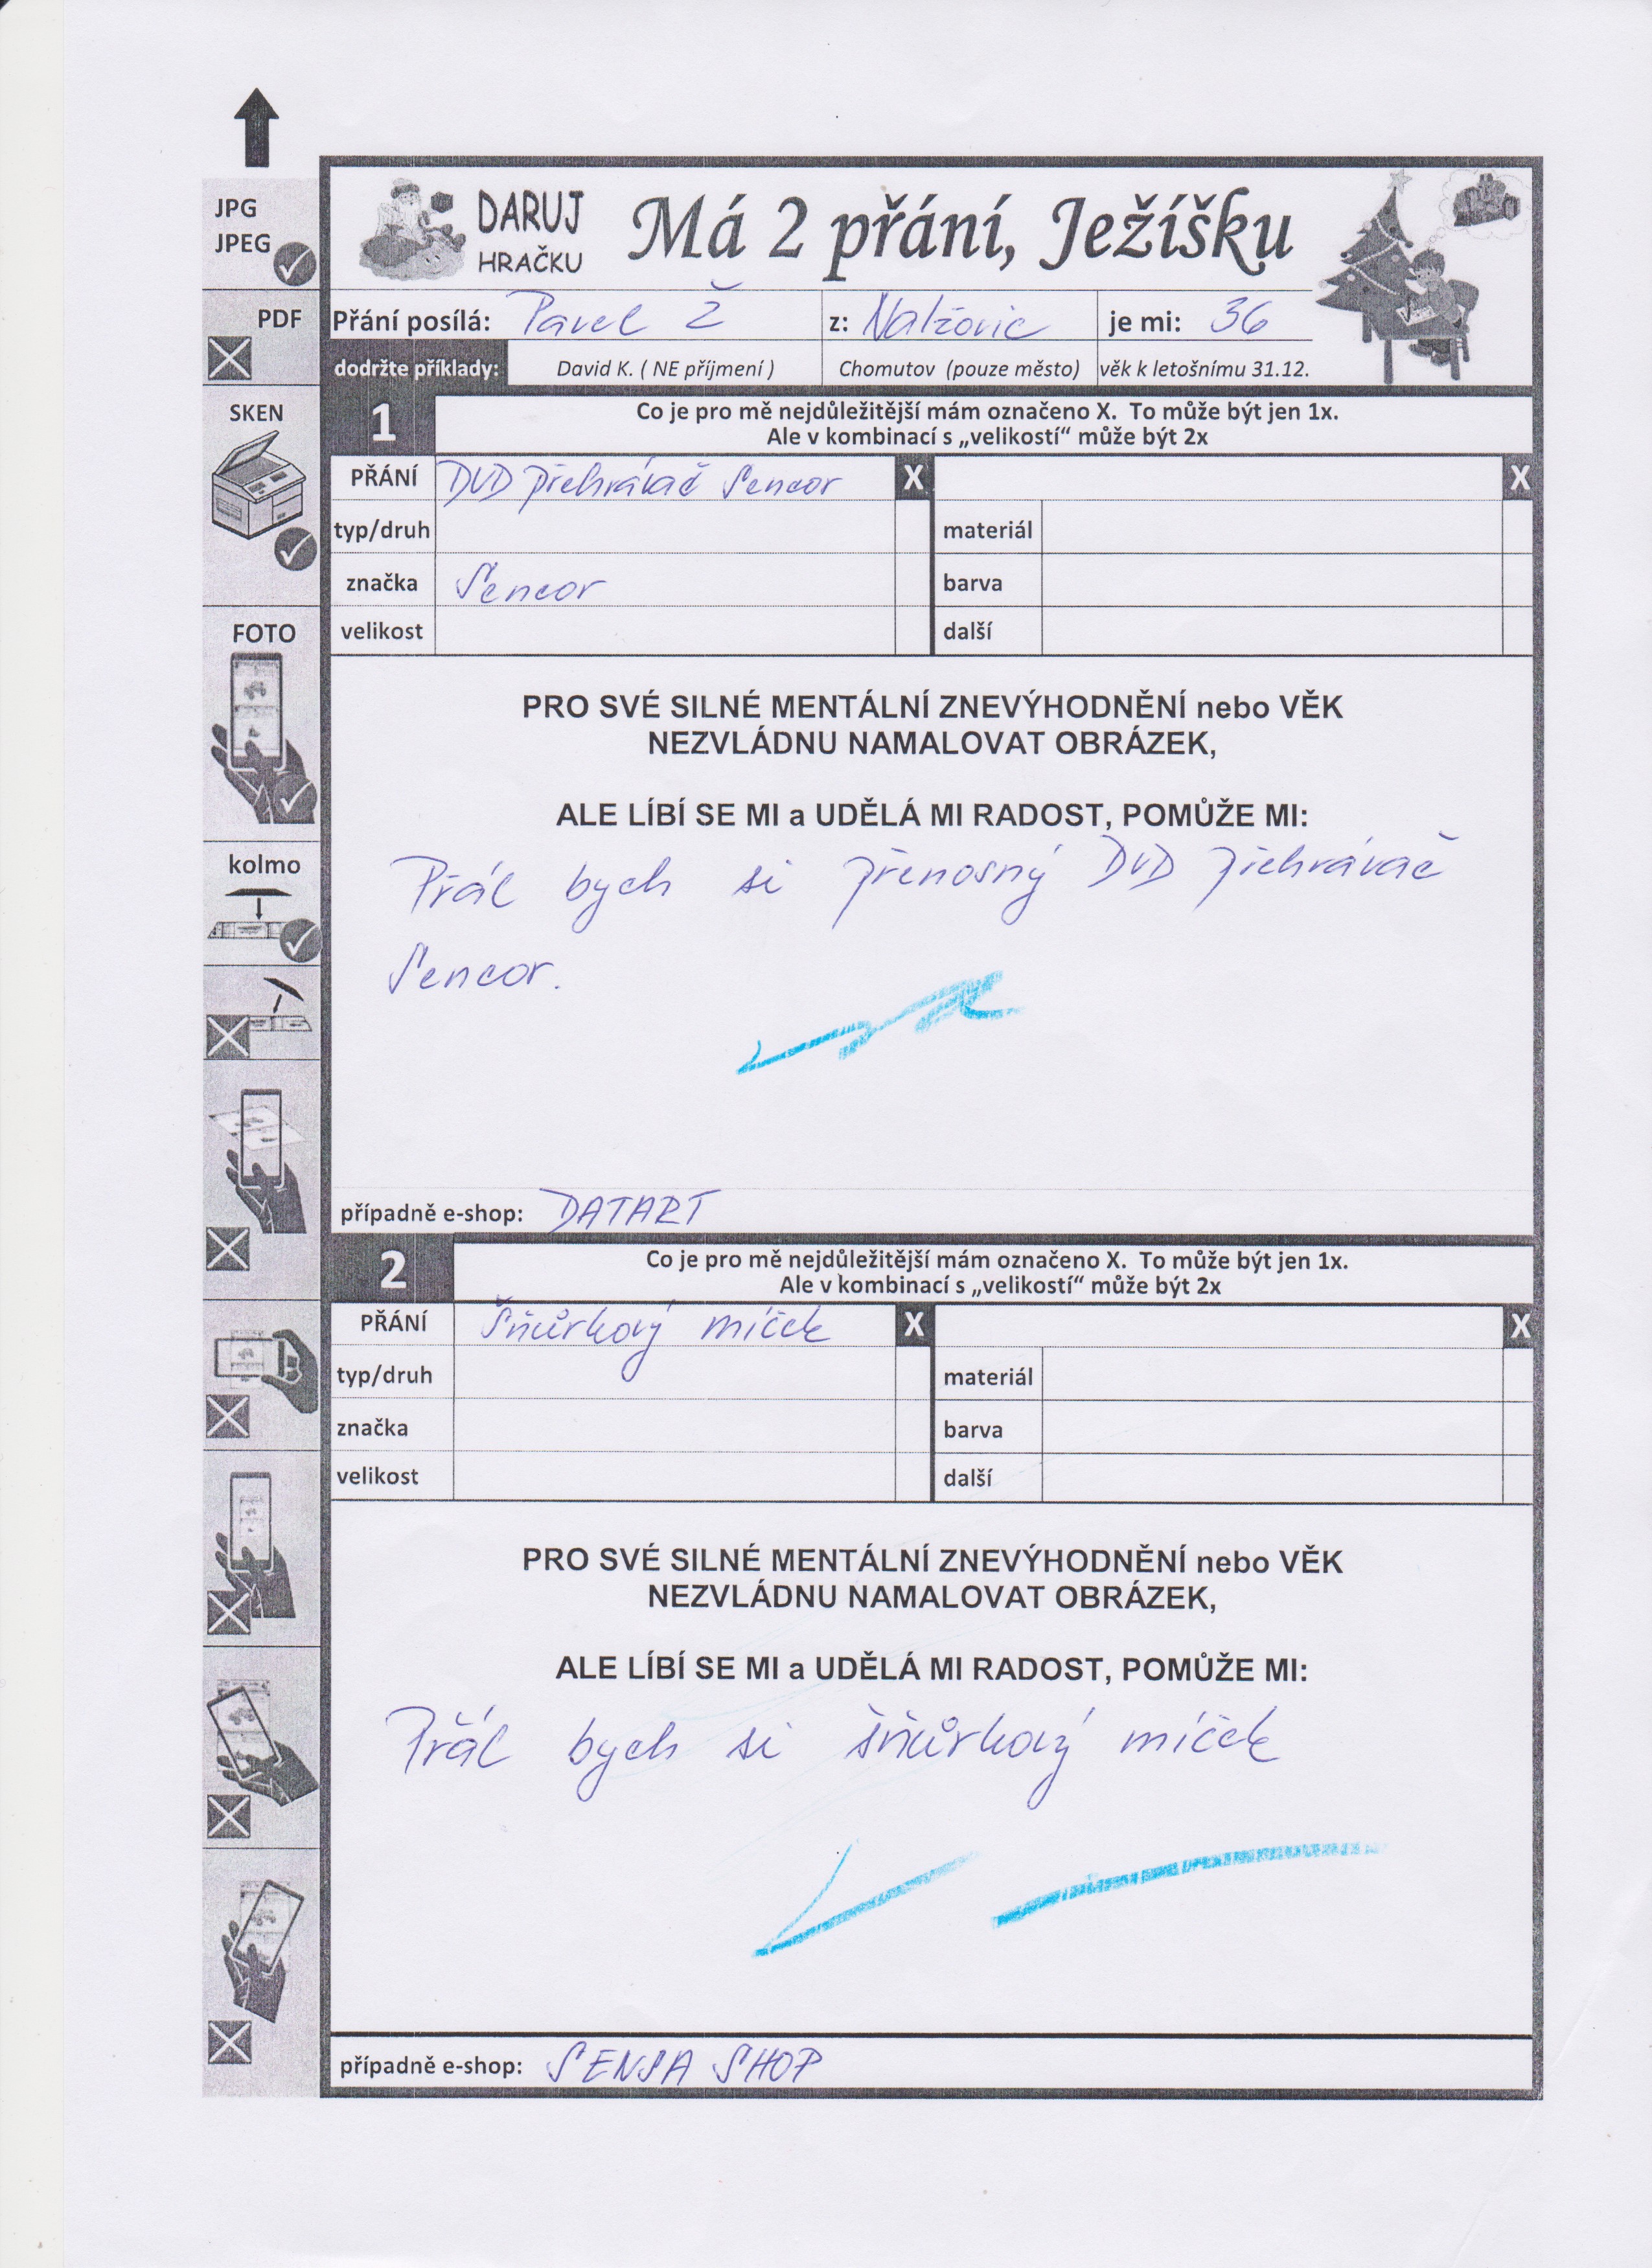 JPG
JPEG
PDF
SKEN
FOTO
kolmo
DARUJ
HRAČKU
Má 2 přání, Ježíšku
Přání posílá: Pavel Ž z: Nalžovic je mi: 36
dodržte příklady: David K. ( NE příjmení ) Chomutov (pouze město) věk k letošnímu 31.12.
1 Co je pro mě nejdůležitější mám označeno X. To může být jen 1x.
Ale v kombinací s „velikostí“ může být 2x
PŘÁNÍ DVD přehrávač Sencor X X
typ/druh materiál
značka Sencor barva
velikost další
PRO SVÉ SILNÉ MENTÁLNÍ ZNEVÝHODNĚNÍ nebo VĚK
NEZVLÁDNU NAMALOVAT OBRÁZEK,
ALE LÍBÍ SE MI a UDĚLÁ MI RADOST, POMŮŽE MI:
Přál bych si přenosný DVD přehrávač
Sencor.
případně e-shop: DATART
2 Co je pro mě nejdůležitější mám označeno X. To může být jen 1x.
Ale v kombinací s „velikostí“ může být 2x
PŘÁNÍ Šňůrkový míček X X
typ/druh materiál
značka barva
velikost další
PRO SVÉ SILNÉ MENTÁLNÍ ZNEVÝHODNĚNÍ nebo VĚK
NEZVLÁDNU NAMALOVAT OBRÁZEK,
ALE LÍBÍ SE MI a UDĚLÁ MI RADOST, POMŮŽE MI:
Přál bych si šňůrkový míček
případně e-shop: SENSA SHOP